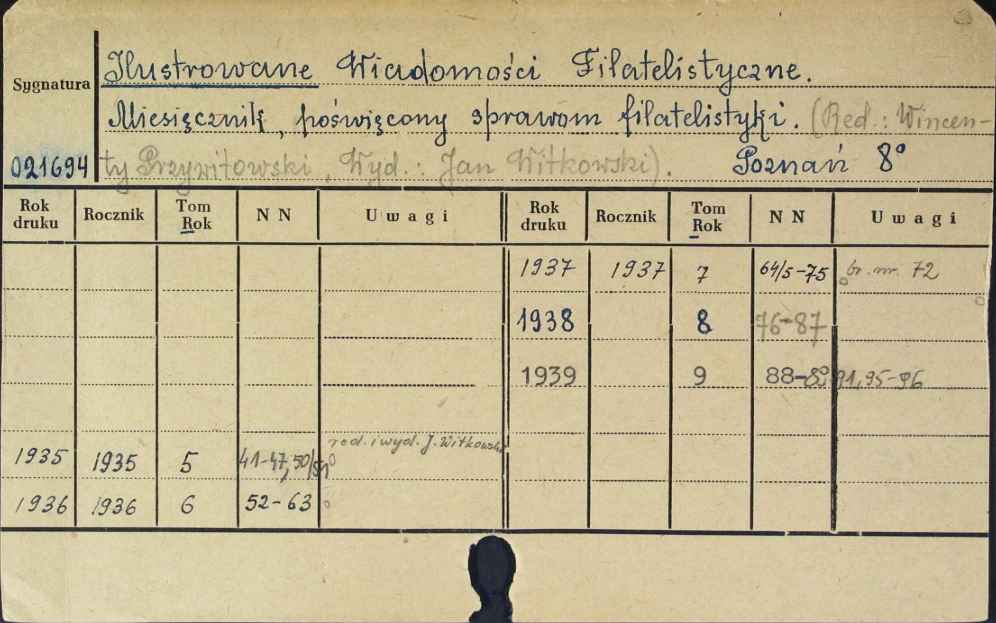 Sygnatura
021694
Ilustrowane Wiadomości Filatelistyczne.
Miesięcznik, poświęcony sprawom filatelistyki. (Red.: Wincen-
ty Przywitowski, Wyd.: Jan Witkowski). Poznań 8°
Rok druku Rocznik Tom Rok NN Uwagi Rok druku Rocznik Tom Rok NN Uwagi
1937 1937 7 64/5-75 br. nr. 72
1938 8 76-87
1939 9 88-89, 91, 95-96
red. i wyd. J. Witkowski
1935 1935 5 41-47, 50/51
1936 1936 6 52-63